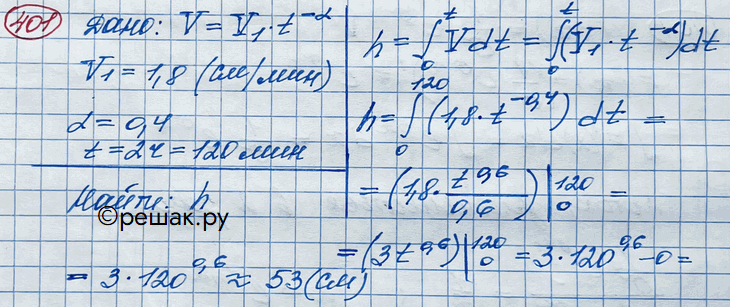 401 Дано: V = V₁·t^(-α)
V₁ = 1,8 (см/мин)
α = 0,4
t = 2ч = 120 мин
Найти: h
©решак.ру
h = ∫₀ᵗ V dt = ∫₀ᵗ (V₁·t^(-α)) dt
h = ∫₀¹²⁰ (1,8·t^(-0,4)) dt =
= (1,8·t^(0,6)/0,6) |₀¹²⁰ =
= (3t^(0,6)) |₀¹²⁰ = 3·120^(0,6) - 0 =
= 3·120^(0,6) ≈ 53 (см)